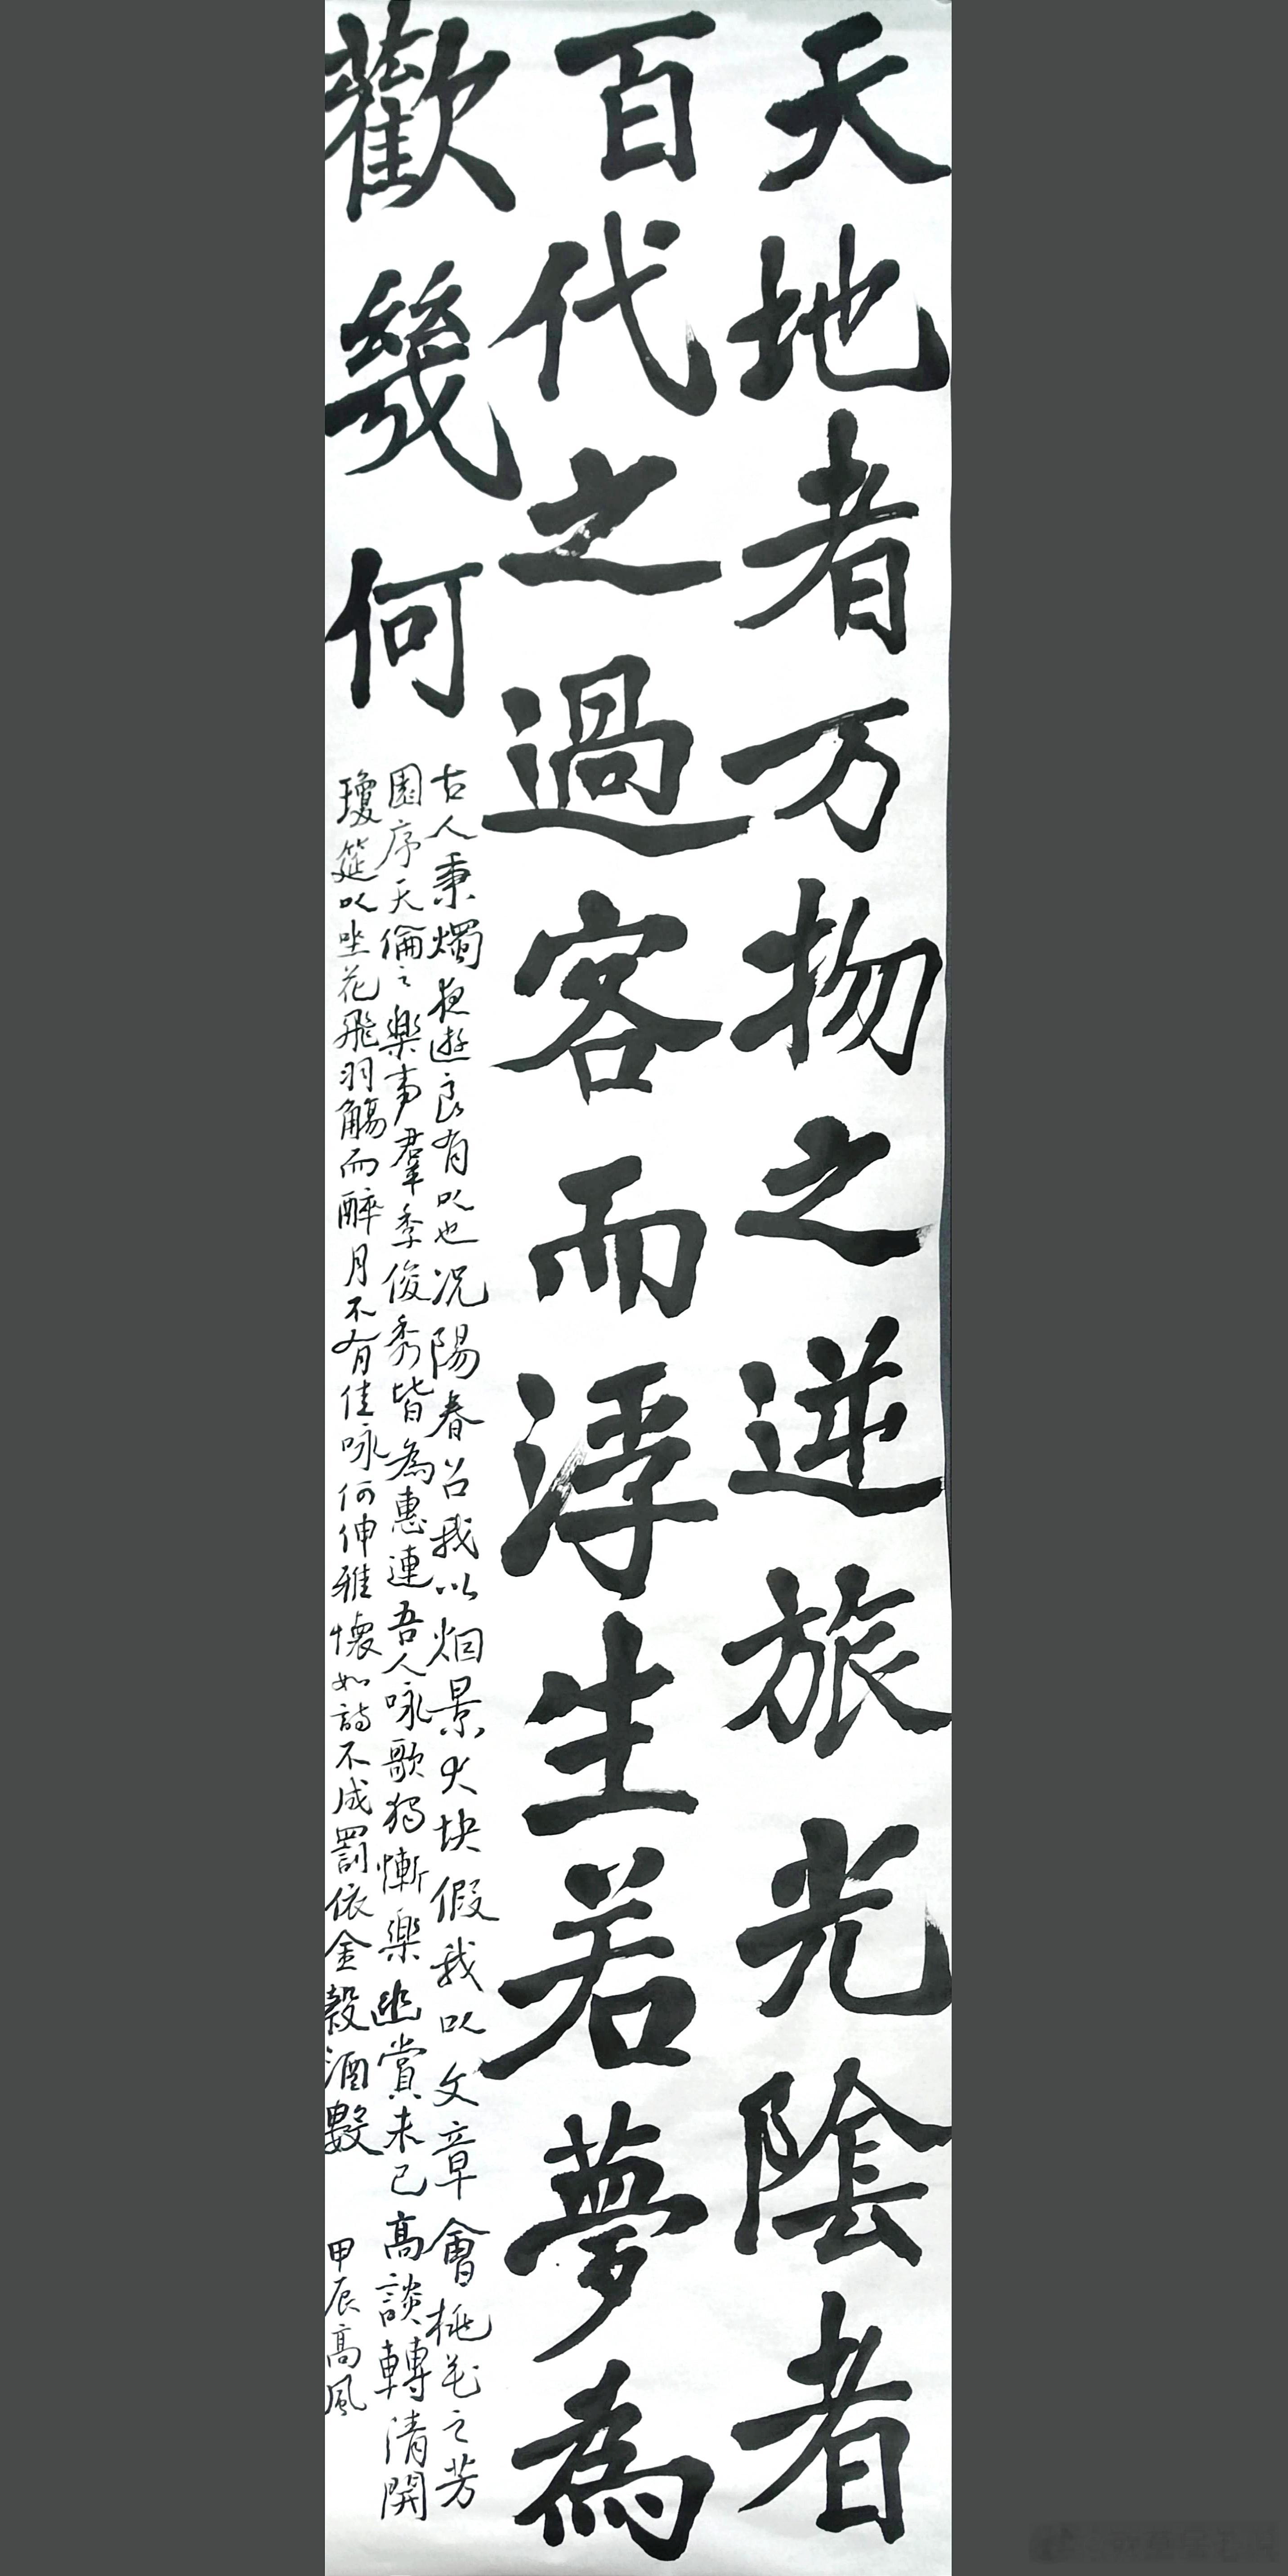 天地者万物之逆旅光陰者
百代之過客而浮生若夢為
歡幾何
古人秉燭夜遊良有以也况陽春召我以烟景大块假我以文章會桃花之芳
園序天倫之樂事羣季俊秀皆為惠連吾人咏歌獨慚樂幽賞未已高談轉清開
瓊筵以坐花飛羽觴而醉月不有佳咏何伸雅懷如詩不成罰依金穀酒數
甲辰高風